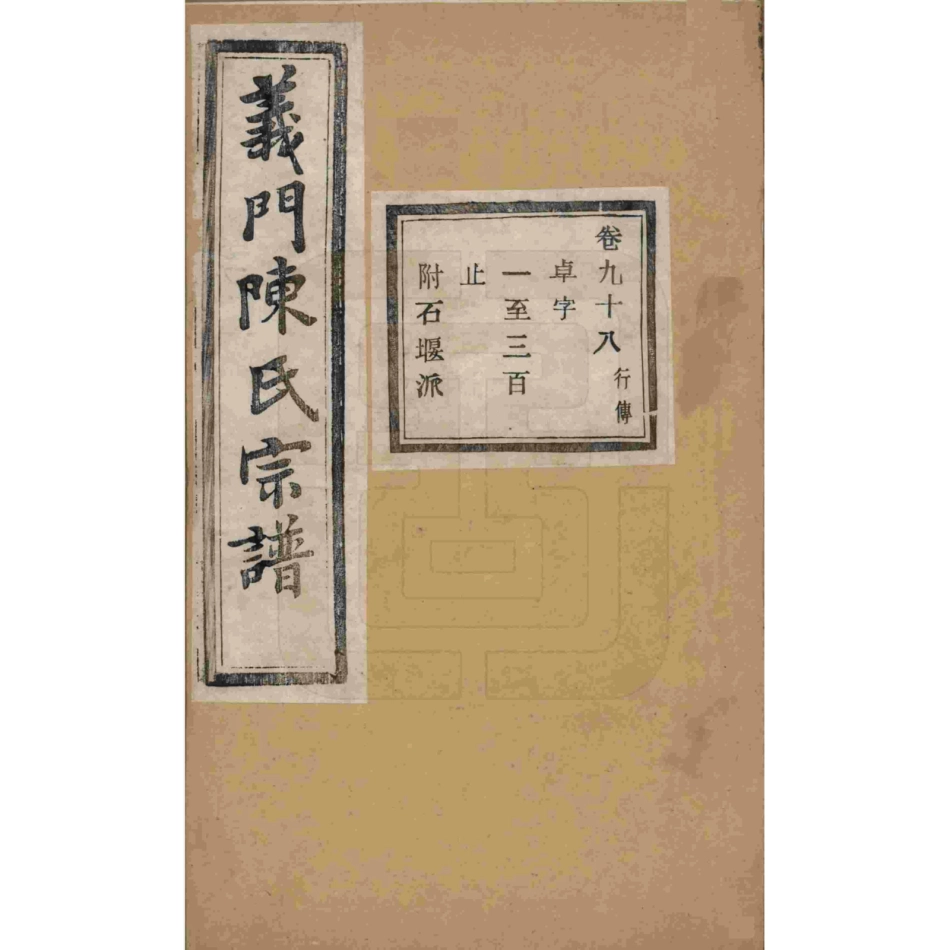 義門陳氏宗譜
卷九十八 行傳
卓字
一至三百
止
附石堰派